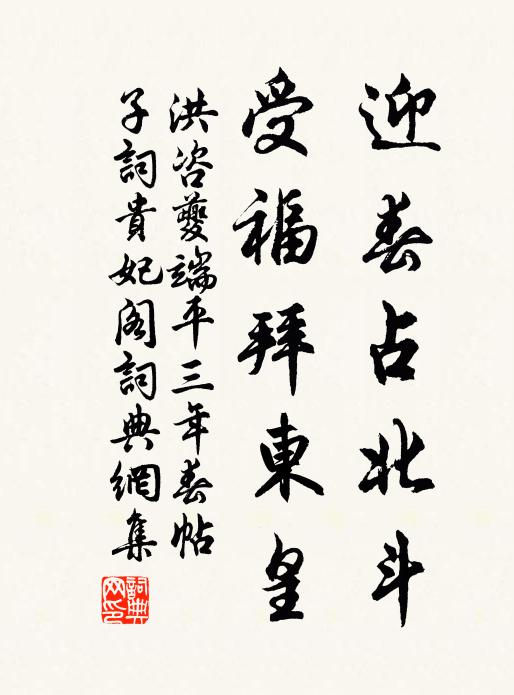 迎春占北斗
受福拜東皇
洪咨夔端平三年春帖
子詞貴妃閣詞典網集
詞典网印